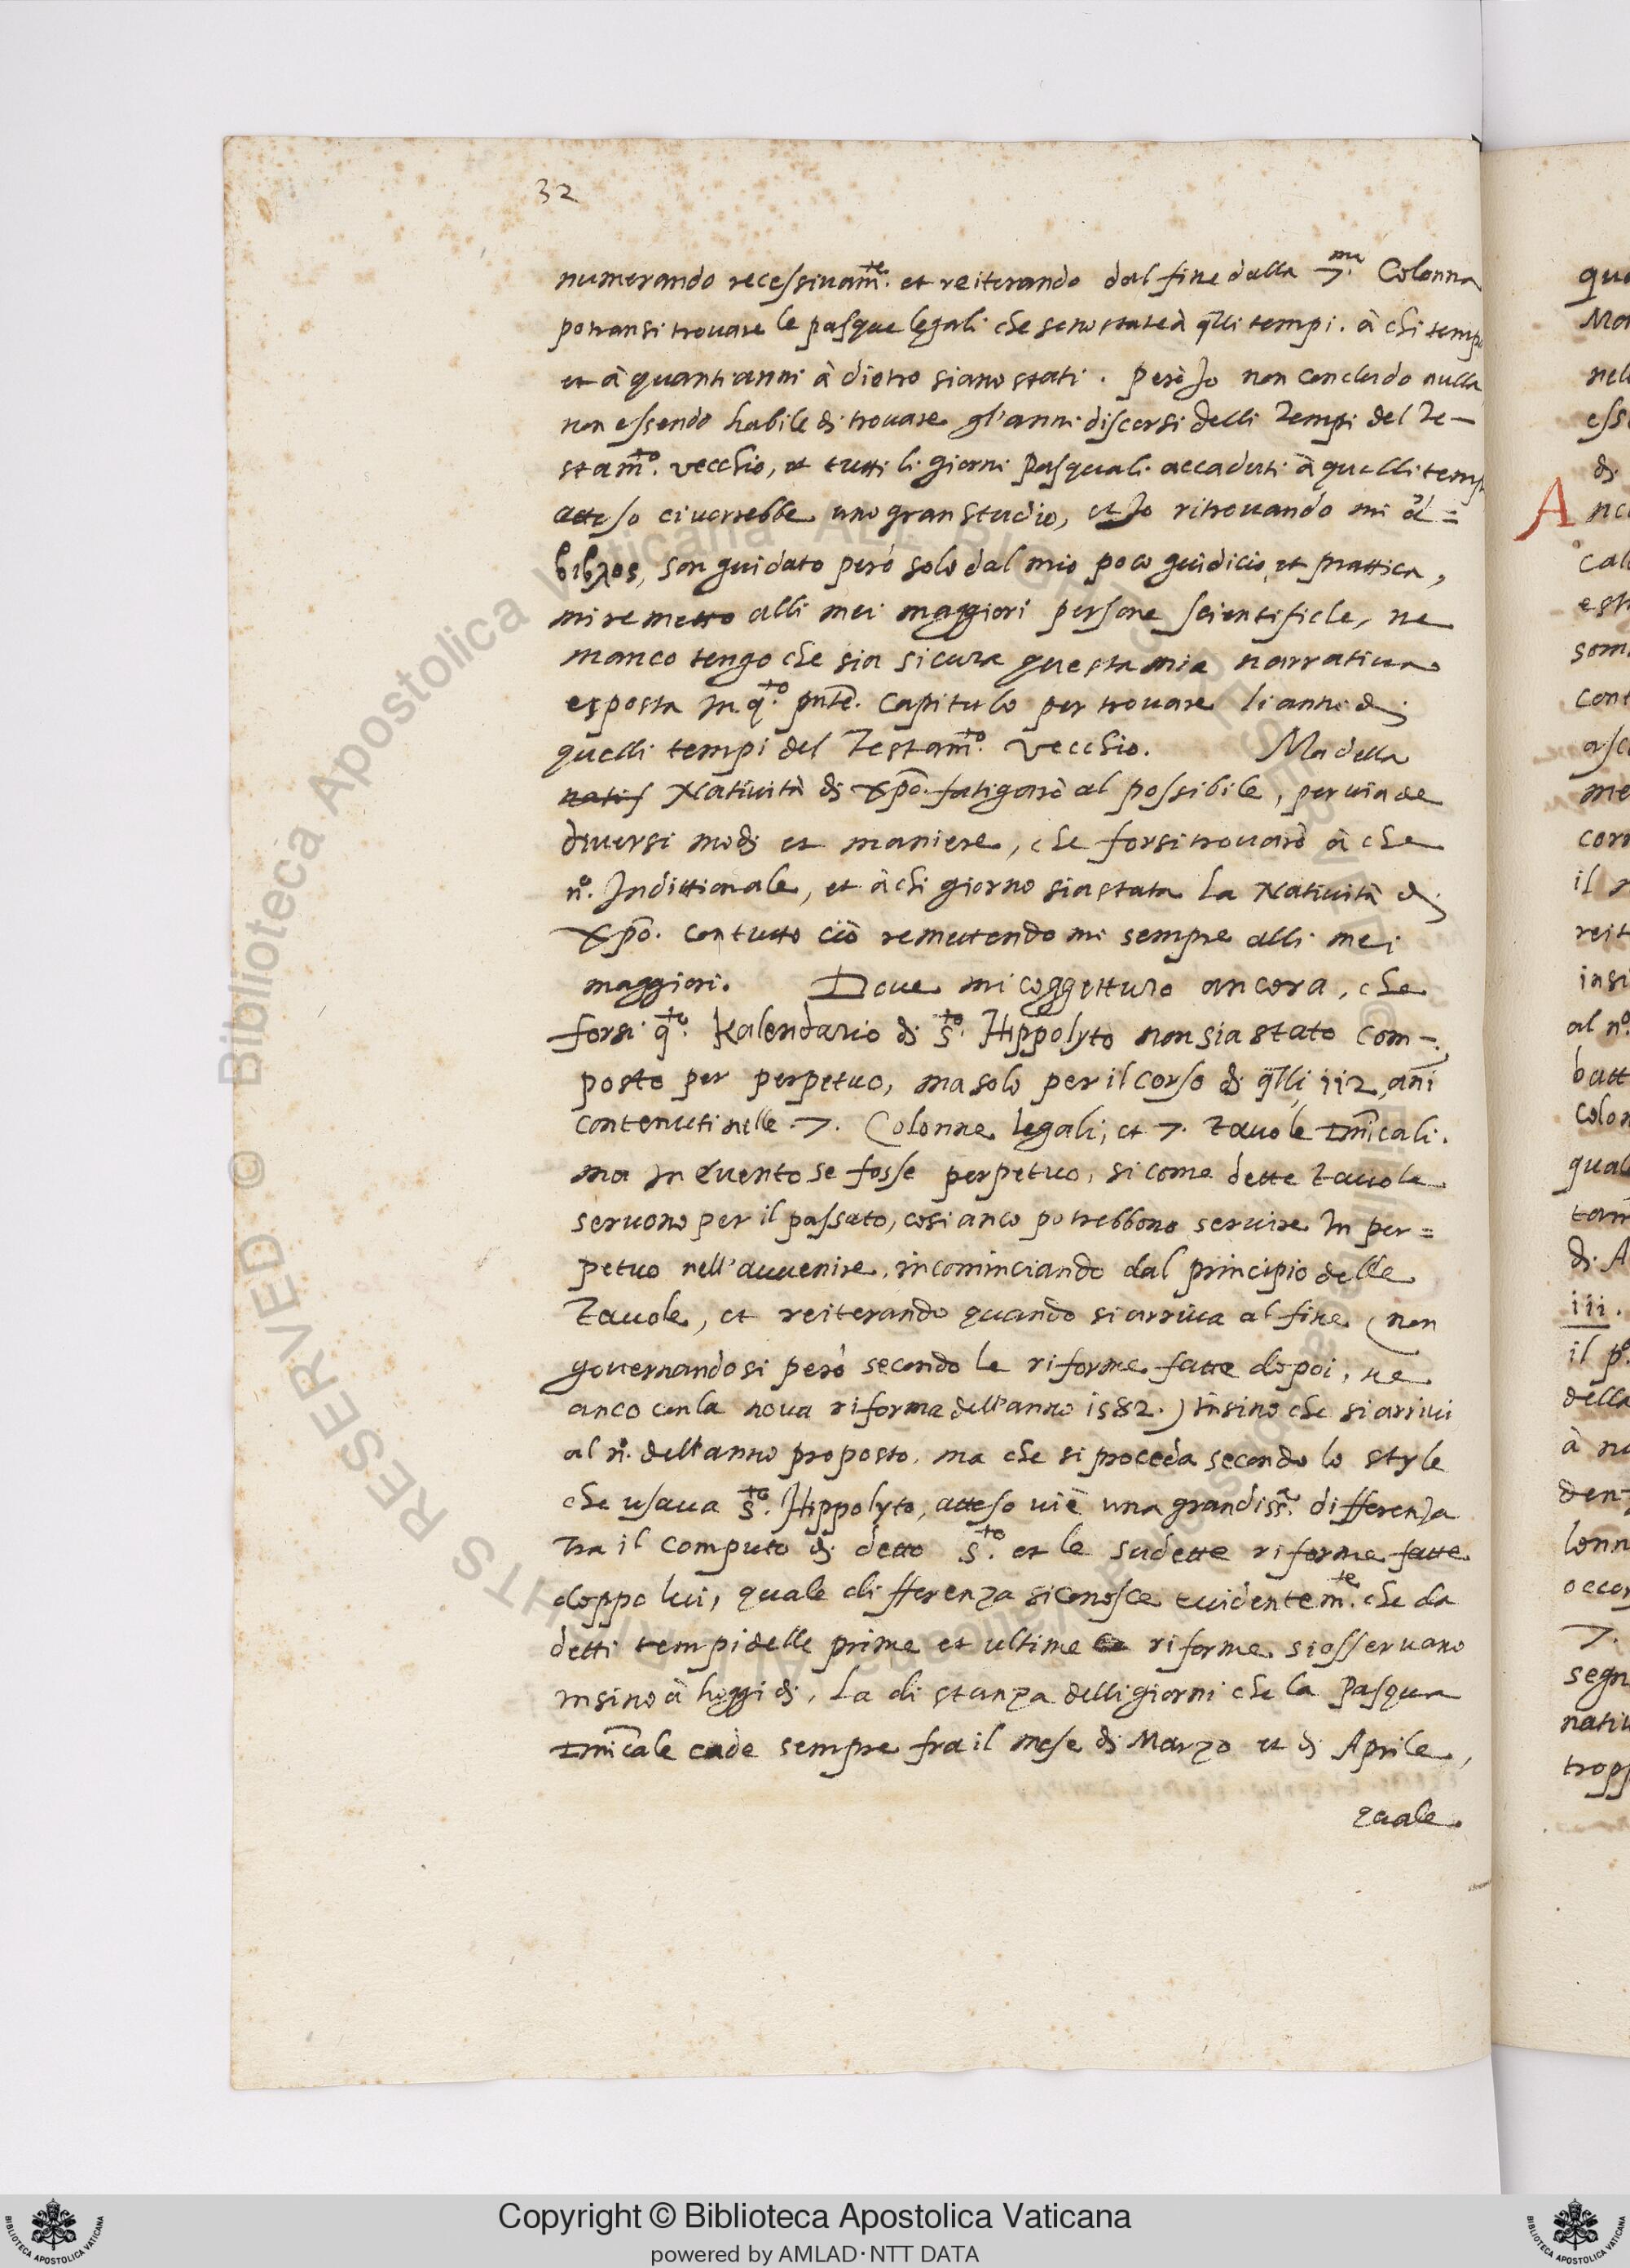 32
numerando recessiuam.te et reiterando dal fine della 7.ma Colonna
potransi trouare le pasque legali che sono state à q̃lli tempi. à chi temp
et à quanti anni à dietro siano stati. però Io non concludo nulla
non essendo habile di trouare gl'anni discorsi delli Tempi del Te-
stam.to vecchio, et tutti li giorni Pasquali accaduti à quelli temp
atteso ci uorrebbe uno gran studio, et Io ritrouando mi
βιβλος, son guidato però solo dal mio poco guidicio et prattica,
mi remetto alli mei maggiori persone scientifiche, ne
manco tengo che sia sicura questa mia narratiua
esposta In q.to pñte. Capitulo per trouare li anni di
quelli tempi del Testam.to vecchio. Ma della
natiỉ Natiuità di Xp̃o. fatigarò al possibile, per uia de
diuersi modi et maniere, che forsi trouarò à che
n.o Indittionale, et à chi giorno sia stata La Natiuità di
Xp̃o. con tutto ciò remettendo mi sempre alli mei
maggiori. Doue mi coggetturo ancora, che
forsi q.to Kalendario di S.to Hippolyto non sia stato com-
posto per perpetuo, ma solo per il corso di q̃lli 112 añi
contenuti nelle .7. Colonne legali, et 7. Tauole Dñicali.
ma In euento se fosse perpetuo, si come dette Tauole
seruono per il passato, cosi anco potrebbono seruire In per=
petuo nell'auuenire, incominciando dal principio delle
Tauole, et reiterando quando si arriua al fine (non
gouernandosi però secondo le riforme fatte dopoi, ne
anco con la noua riforma dell'anno 1582.) Insino che si arriui
al n.o dell'anno proposto. ma che si proceda secondo lo style
che usaua S.to Hippolyto, atteso ui è una grandiss.a differenza
Tra il computo di detto S.to et le sudette riforme fatte
doppo lui, quale differenza si conosce euidentem.te che da
detti tempi delle prime et ultime riforme si osseruano
insino à hoggi di, La distanza delli giorni che la Pasqua
Dñicale cade sempre fra il mese di Marzo et di Aprile,
quale